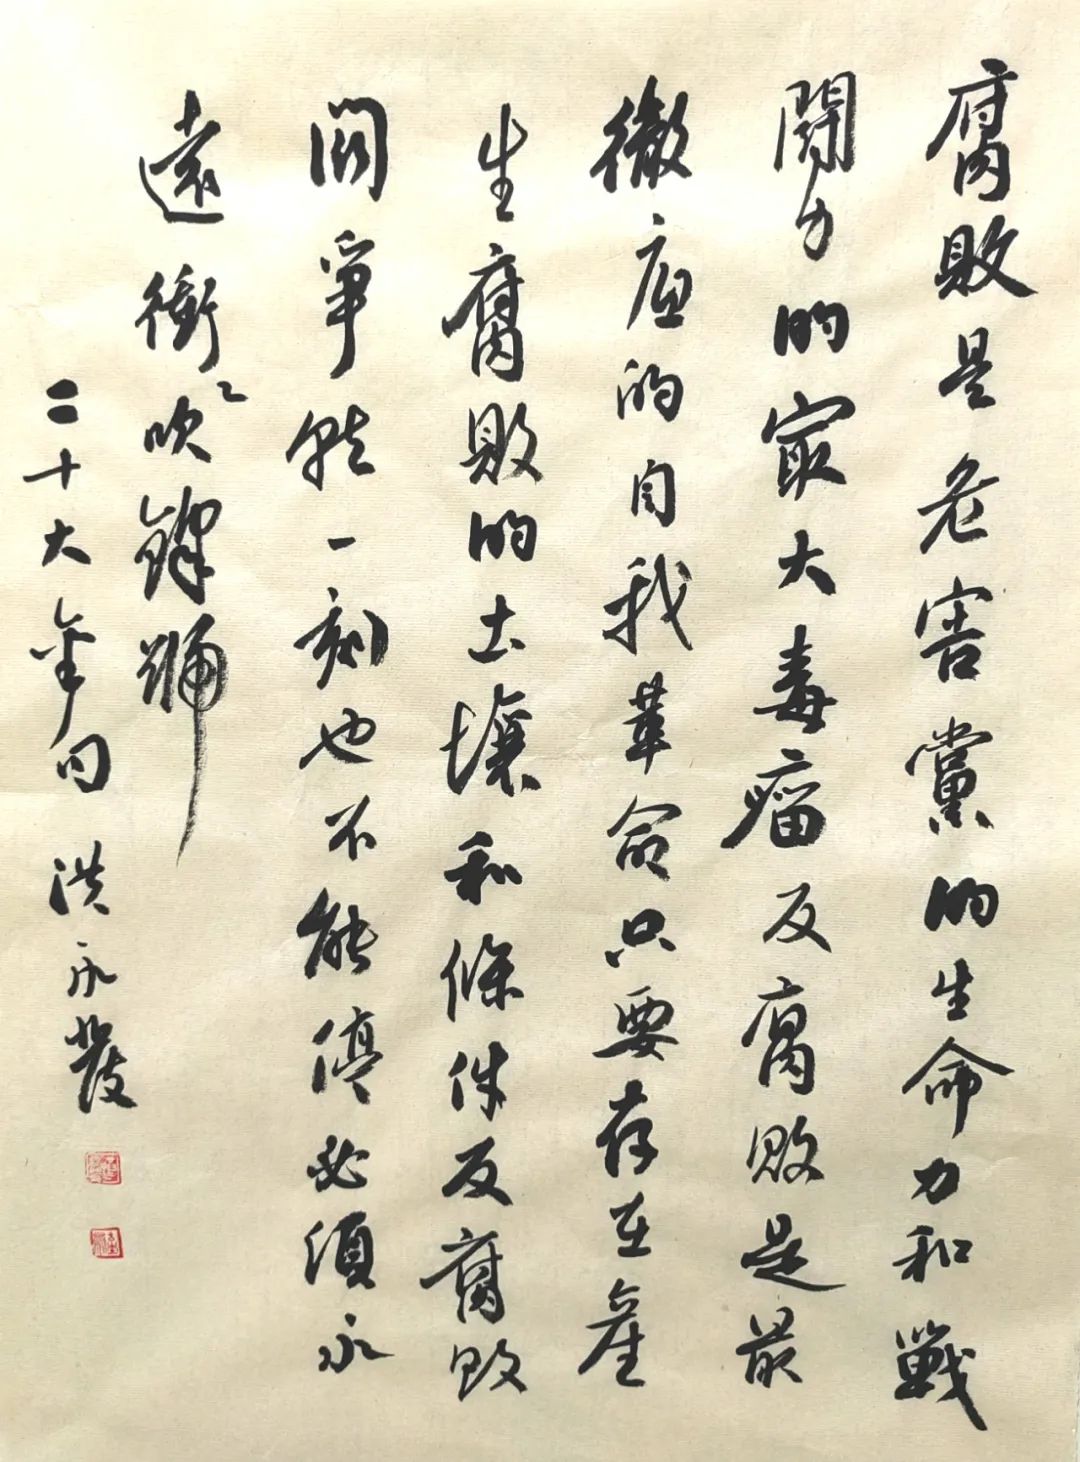 腐敗是危害黨的生命力和戰
鬪力的㝡大毒瘤反腐敗是最
徹底的自我革命只要存在產
生腐敗的土壤和條件反腐敗
鬪爭就一刻也不能停必須永
遠衝吹鋒號
二十大金句 洪永發